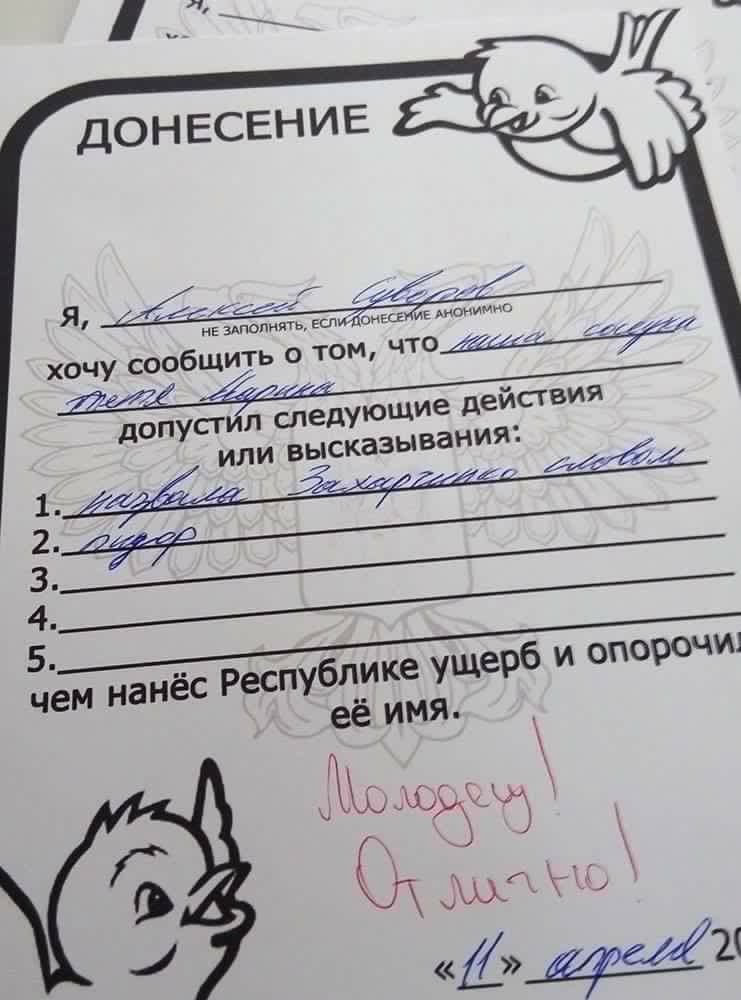 Я,
ДОНЕСЕНИЕ
Я, Алексей Суворов
НЕ ЗАПОЛНЯТЬ, ЕСЛИ ДОНЕСЕНИЕ АНОНИМНО
хочу сообщить о том, что наша соседка
тетя Марина
допустил следующие действия
или высказывания:
1. назвала Захарченко словом
2. пидор
3.
4.
5.
чем нанёс Республике ущерб и опорочил
её имя.
Молодец!
Отлично!
«11» апреля 20